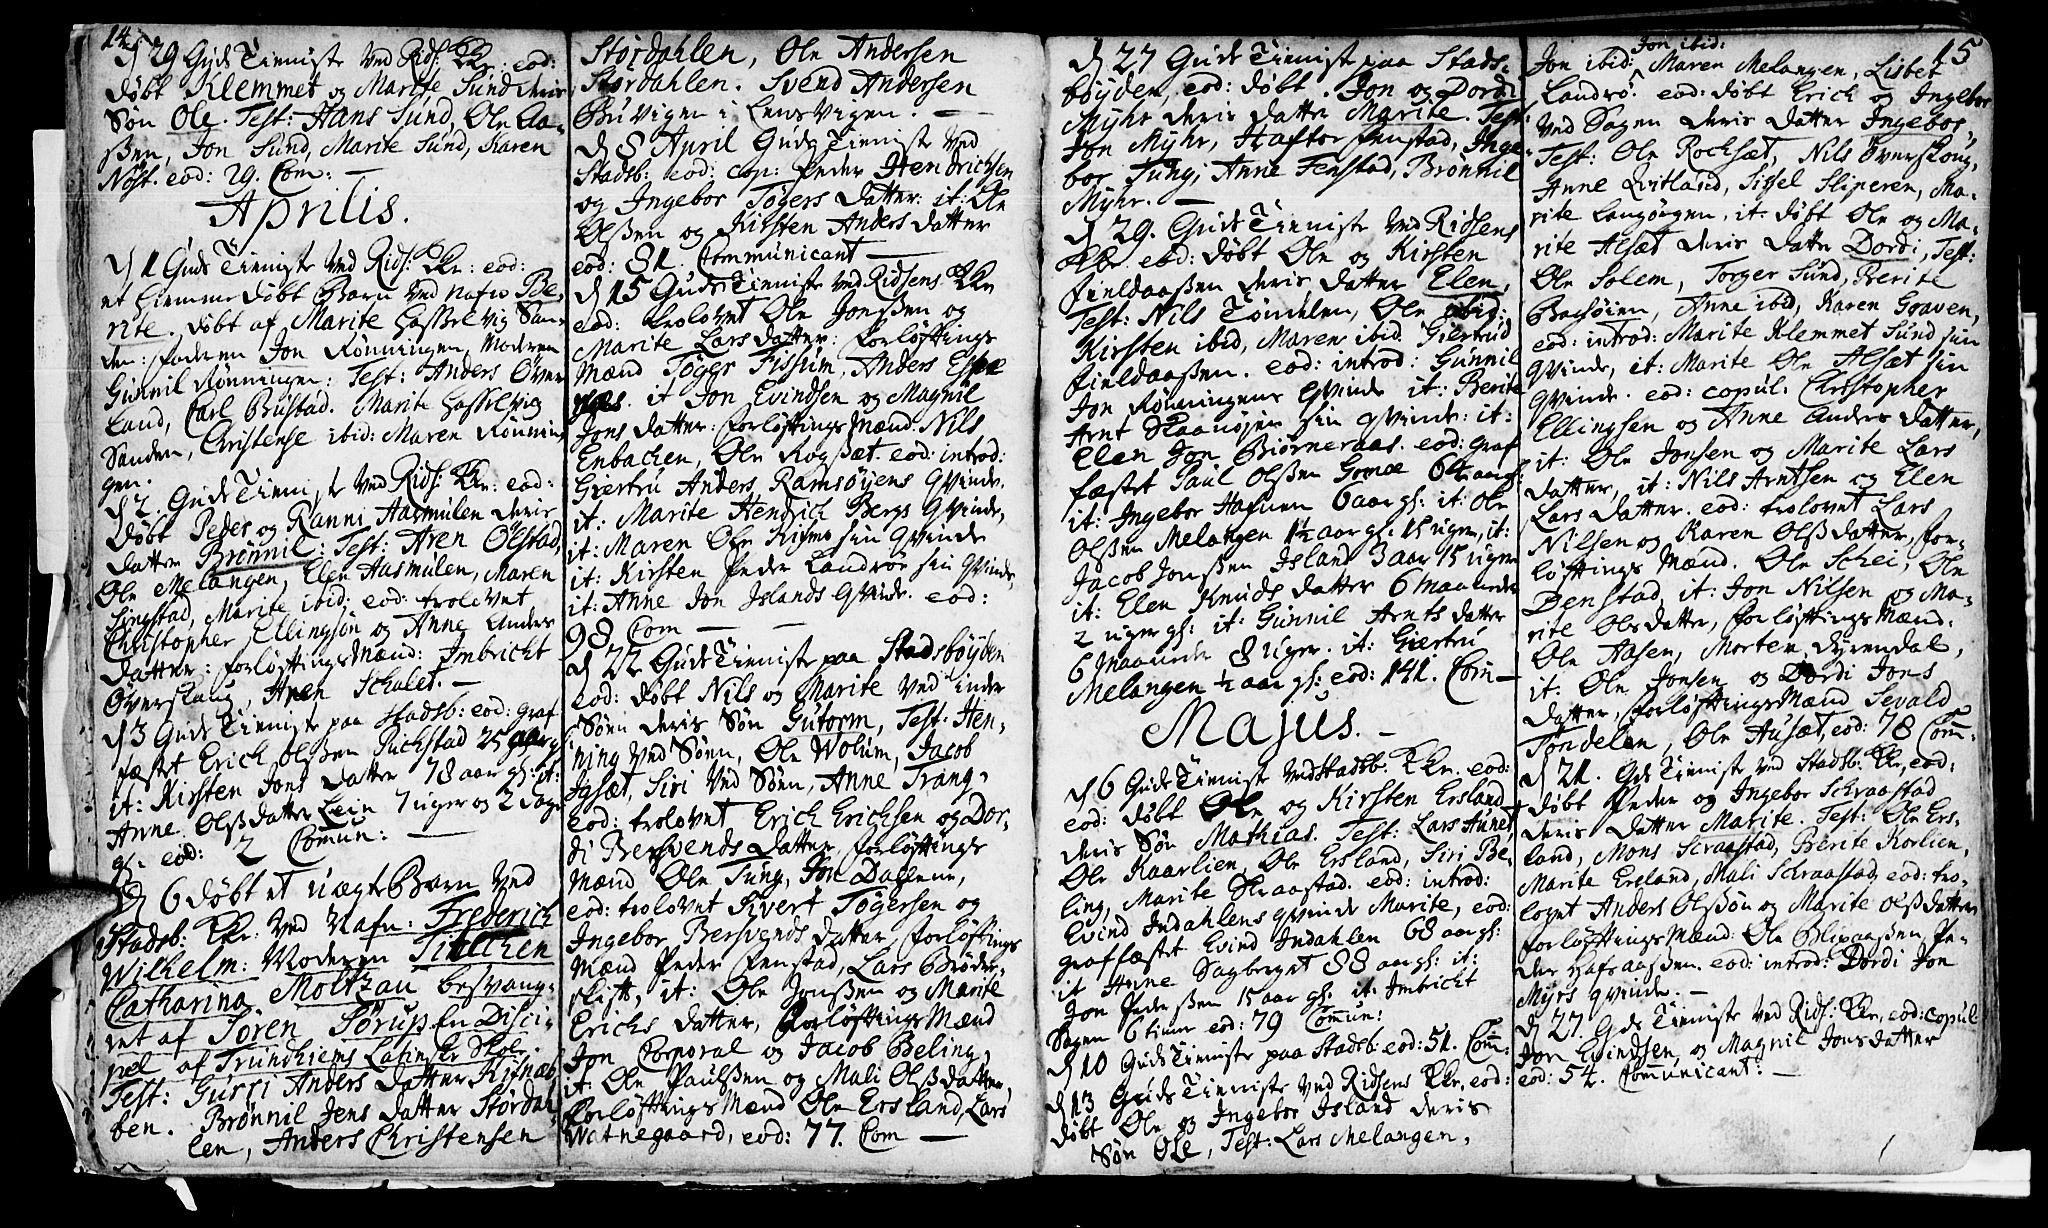 14.
d 29 Guds Tieniste ved Ridſ: Kr: eod:
døbt Klemmet og Marite Sund deris
Søn Ole. Test: Hans Sund, Ole Aa-
ßen, Jon Sund, Marite Sund, Karen
Nøst. eod: 29. Com: —
Aprilis.
d 1 Guds Tieniste ved Ridſ: Kr: eod:
et hiemme døbt Barn ved nafn Be-
rite. døbt af Marite Hasselvig San-
den: faderen Jon Rønningen, Moderen
Gunnil Rønningen: Test: Anders Over
Land, Carl Bustad. Marite Hasselvig
Sanden, Christense ibid: Maren Rønnin
gen.
d 2. Guds Tieniste ved Ridſ: Kr: eod:
døbt Peder og Ranni Aasmulen deris
datter Brønnil: Test: Aren Ølstad,
Ole Melangen, Elen Aasmulen, Maren
Singstad, Marite ibid: eod: trolovet
Christopher Ellingsøn og Anne Anders
datter: forløftings Mænd: Imbricht
Overskaug, Aren Schalet. —
d 3 Guds Tieniste paa Stadsb: eod: graf
fæstet Erich Olßen Rickstad 25 aar g
it: Kirsten Jons datter 78 aar gl: it:
Anne Olßdatter Lein 7 uger og 2 Dage
gl. eod: 2 Comun: —
d 6 døbt et uægte Barn ved
Stadsb: Kr: ved Nafn: Frederich
Wilhelm: Moderen
Catharina Moltzau besvang-
ret af Søren Sørup En Disci-
pel af Trundhiems Latinske Skole
Test: Gurri Anders datter Rifnæb
ben. Brønnil Jens datter Størdah
len, Anders Christensen
Størdahlen, Ole Andersen
Størdahlen. Svend Andersen
Buvigen i Lensvigen. —
d 8 April Guds Tieniste ved
Stadsb: eod: cop: Peder Hendrichsen
og Ingebor Tøgers datter: it: Ole
Olßen og Kirsten Anders datter
eod: 81. Communicant —
d 15 Guds Tieniste ved Ridsens Kr
eod: trolovet Ole Jonßen og
Marite Lars datter: forløftings
Mænd Tøger Fissum, Anders Espe
næs. it Jon Evindsen og Magnil
Jons datter: forløftings Mænd Nils
Enbachen, Ole Rogsæt. eod: introd:
Giertru Anders Ramsøyens Qvinde,
it: Marite Hendrich Bergs Qvinde,
it: Maren Ole sin Qvinde
it: Kirsten Peder Landrøe sin Qvinde,
it: Anne Jon Islands Qvinde. eod:
98 Com —
d 22 Guds Tieniste paa Stadsbøyden
eod: døbt Nils og Marite ved inder
Søen deris Søn Gutorm, Test: Hen-
ning ved Søen, Ole Wolum, Jacob
Igsæt, Siri ved Søen, Anne Trang-
eod: trolovet Erich Erichsen og Dor-
di Bersvends datter, forløftings
Mænd Ole Tung, Jon Dallene,
eod: trolovet Sivert Tøgersen og
Ingebor Bersvends datter, forløftings
Mænd Peder Fenstad, Lars Brøder-
skift, it: Ole Jonßen og Marite
Erichs datter, forløftings Mænd
Jon Corporal og Jacob Beling,
it Ole Paulßen og Mali Olßdatter,
forløftings Mænd Ole Ersland, Lars
Watnegaard, eod: 77. Com —
d 27 Guds Tieniste paa Stads-
bøyden, eod: døbt. Jon og Dordi
Myhr deris datter Marite. Test:
Jon Myhr, Haftor Fenstad, Inge-
bor Tung, Anne Fenstad, Brønnil
Myhr. —
d 29. Guds Tieniste ved Ridsens
Kr. eod: døbt Ole og Kirsten
Fieldaaßen deris datter Elen,
Test: Nils Tøndelen, Ole ibid:
Kirsten ibid, Maren ibid Giertrud
Fieldaaßen. eod: introd: Gunnil
Jon Rønningens Qvinde it: Berite
Arnt Staanøien sin qvinde: it:
Elen Jon Biørneraas. eod: graf
fæstet Paul Olßen Gomoe 64 aar gl:
it: Ingebor Hafnen 6 aar gl: it: Ole
Olßen Melangen 1½ aar gl: 15 uger, it:
Jacob Jonßen Island 3 aar 15 uger
it: Elen Knuds datter 6 maaneder
2 uger gl: it: Gunnil Arnts datter
6 Maaneder 8 Uger. it: Giertru
Melangen ½ aar gl: eod: 141. Com —
Majus. —
d 6 Guds Tieniste ved Stadsb: Kr. eod:
eod: døbt Ole og Kirsten Ersland
deris Søn Mathias. Test: Lars Aunet
Ole Kaarlien Ole Ersland, Siri Be-
ling, Marite Skraastad. eod: introd:
Evind Indahlens qvinde Marite, eod:
graffæstet Evind Indahlen 68 aar gl:
it Anne Sagberget 88 aar gl: it:
Jon Pedersßen 15 aar gl: it: Imbricht
Sagen 6 timer eod: 79 Comun:
d 10 Guds Tieniste paa Stadsb: eod: 51. Com:
d 13 Guds Tieniste ved Ridsens Kr. eod:
døbt Ole og Ingebor Island deris
Søn Ole, Test: Lars Melangen,
15
Jon ibid:
Jon ibid: Maren Melangen, Lisbet
Landrø. eod: døbt Erich og Ingebor
ved Sagen deris datter Ingebor,
Test: Ole Rocksæt, Nils Overskoug,
Anne Qvitland, Sissel Sliperen, Ma-
rite Langørgen, it: døbt Ole og Ma-
rite Alsæt deris datter Dordi, Test:
Ole Solem, Torger Sund, Berite
Bachøien, Anne ibid, Karen Graven,
eod: introd: Marite Klemmet Sund sin
Qvinde, it: Marite Ole Alsæt sin
qvinde. eod: copul: Christopher
Ellingsen og Anne Anders datter,
it: Ole Jonsen og Marite Lars
datter, it: Nils Arntsen og Elen
Lars datter. eod: trolovet Lars
Nilsen og Karen Olßdatter, for-
løftings Mænd. Ole Schei, Ole
Denstad, it: Jon Nilsen og Ma-
rite Olsdatter, forløftings Mænd:
Ole Aasen, Morten Dyrendal,
it: Ole Jonsen og Dordi Jons
datter, forløftings Mænd Sevald
Tøndelen, Ole Ausæt, eod: 78 Com:
d 21. Guds Tieniste ved Stadsb: Kr, eod:
døbt Peder og Ingebor Schraastad
deris datter Marite. Test: Ole Ers-
land, Mons Scraastad, Berite Korlien,
Marite Ersland, Mali Schraastad, eod: tro-
lovet Anders Olßøn og Marite Olßdatter
forløftings Mænd: Ole Blixaaßen Pe-
der Hafsaaßen. eod: introd: Dordi Jon
Myrs qvinde. —
d 27. Guds Tieniste ved Ridſ: Kr, eod: copul
Jon Evindsen og Magnil Jonsdatter
eod: 54. Communicant: —